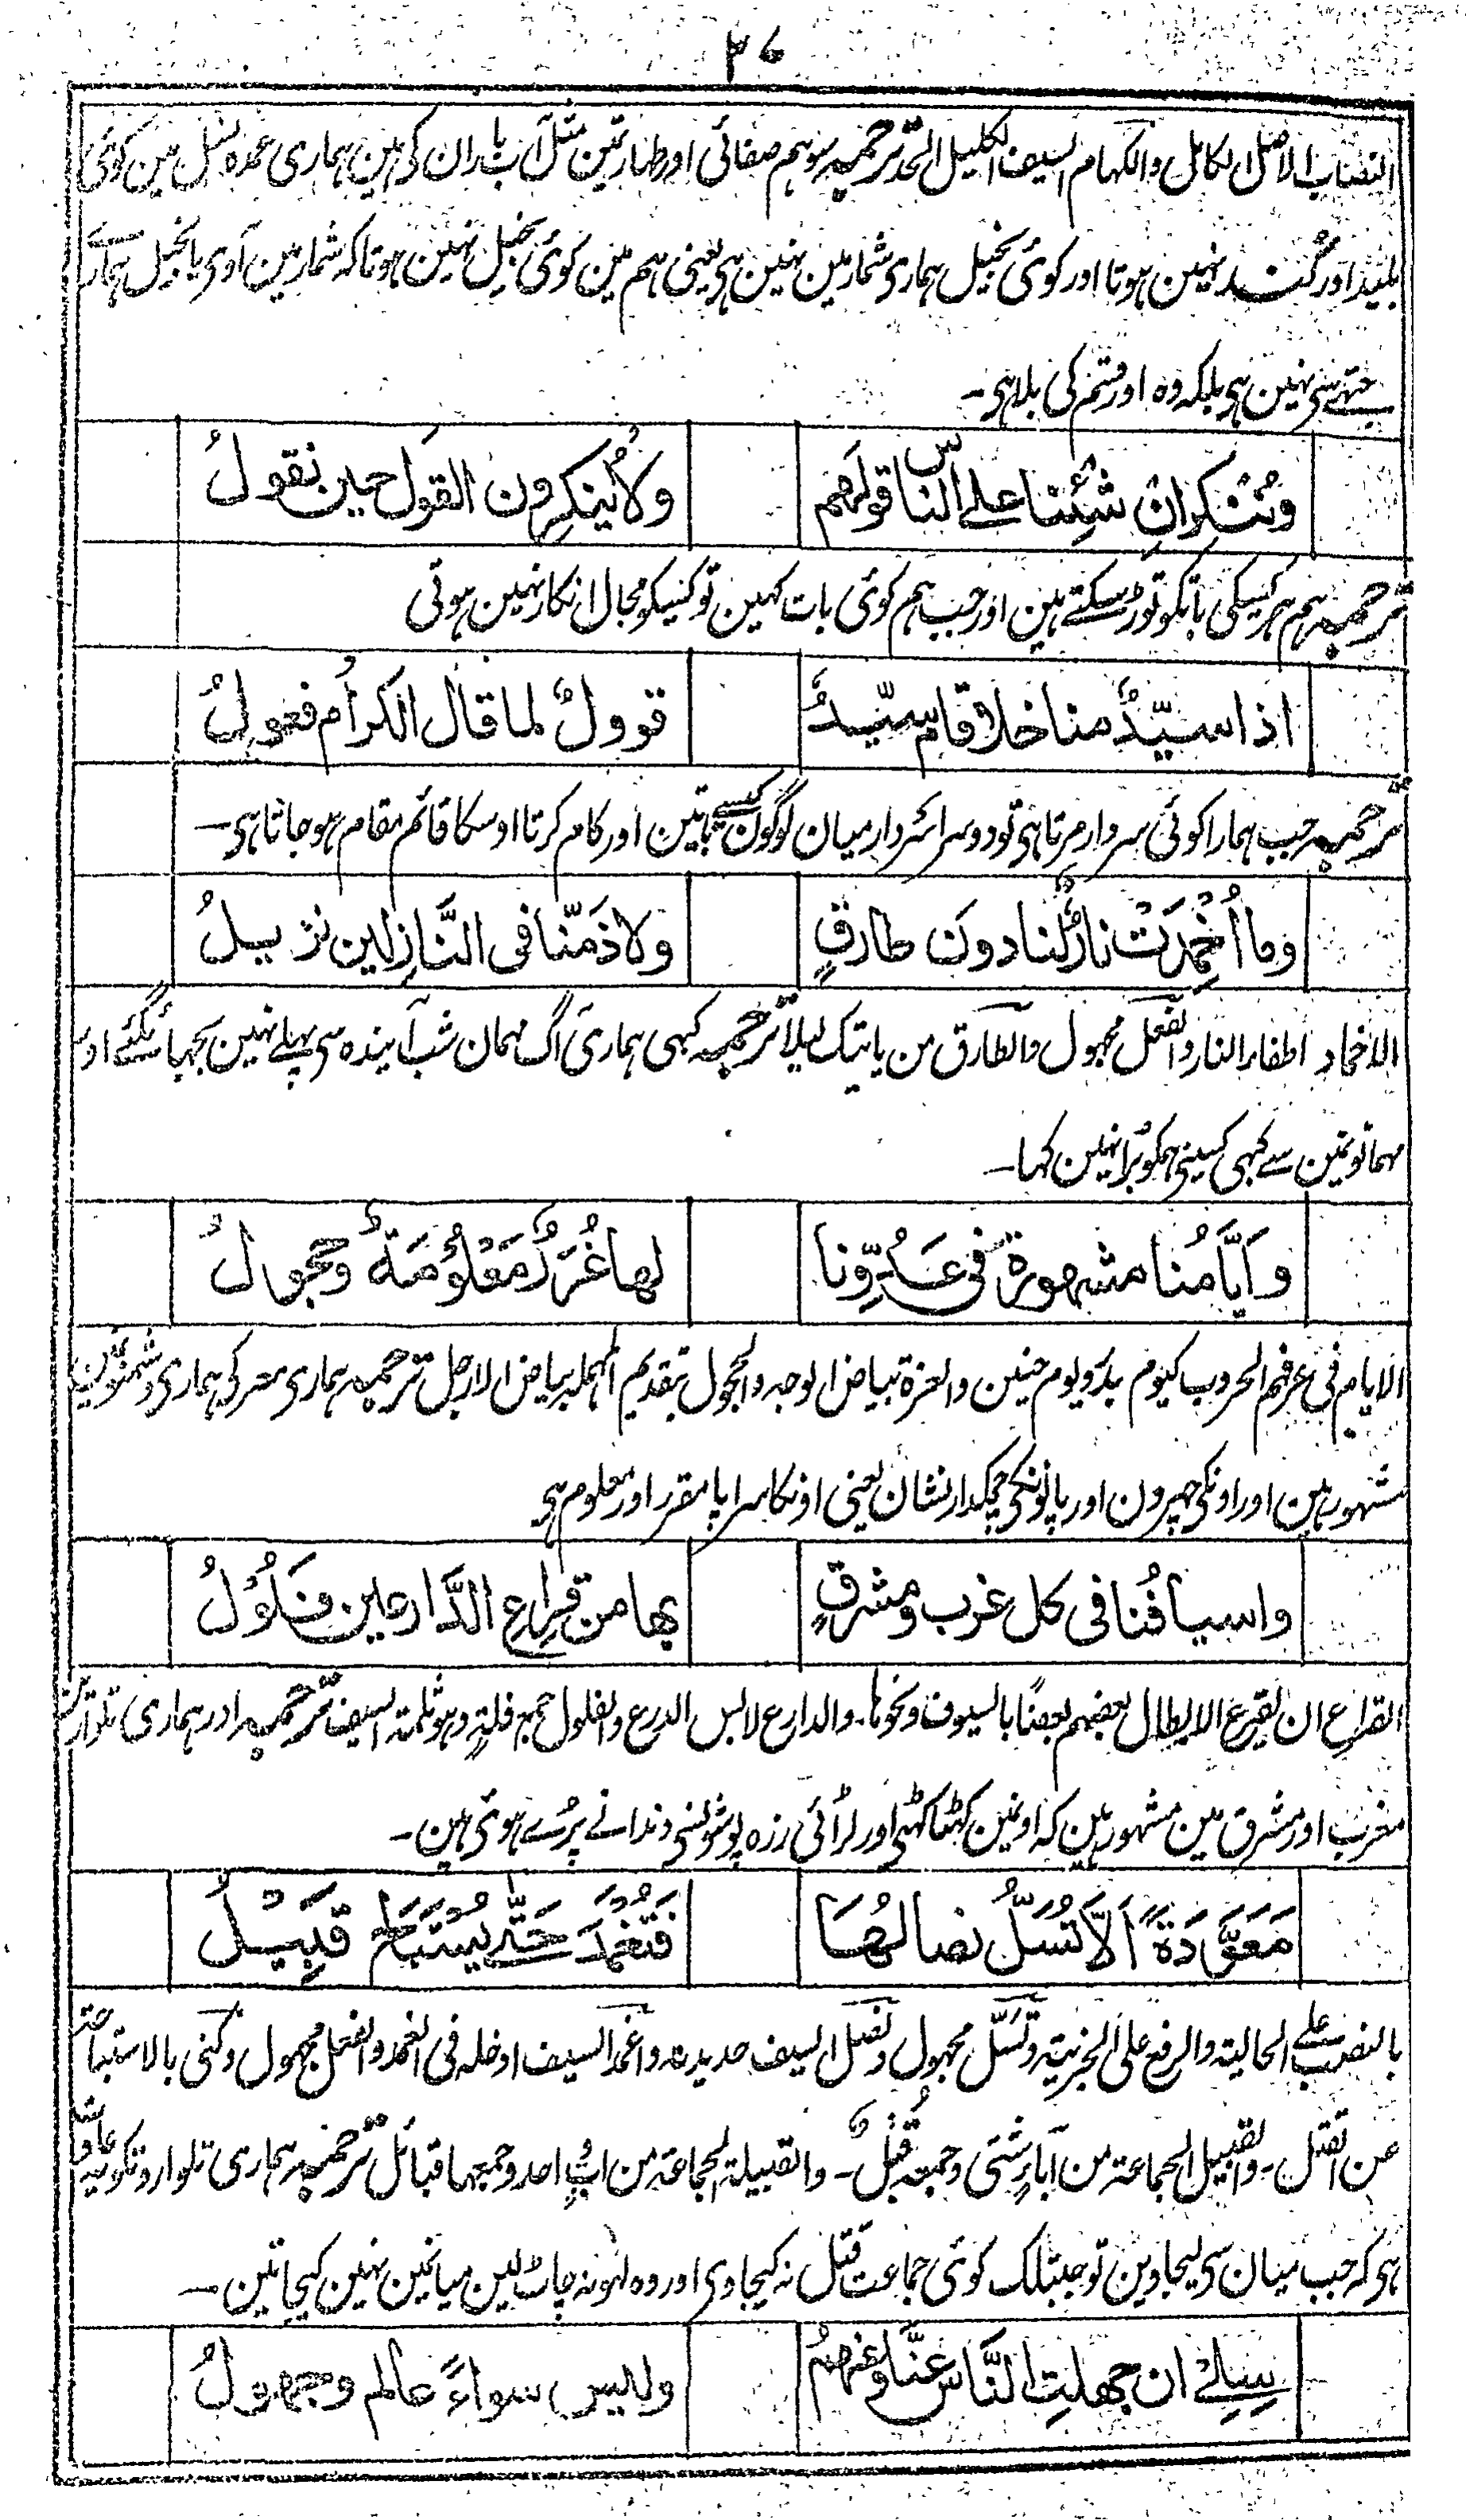 ٣٦
النصاب الاصل الكامل والكهام السيف الكليل الحد ترجمہ سو ہم صفائی اور طہارتمین مثل آب باران کی ہین ہماری عمدہ نسل مین کوئی
بلید اور کند نہین ہوتا اور کوئی بخیل ہماری شمار مین نہین ہی یعنی ہم مین کوئی بخیل نہین ہوتا کہ شمار مین آوی یا بخیل ہمارے
جتہے سی نہین ہی بلکہ وہ اور قسم کی بلا ہی۔
وننكران شئنا على الناس قولهم ولا ينكرون القول حين نقول
ترجمہ ہم ہر کسیکی باتکو توڑ سکتے ہین اور جب ہم کوئی بات کہین تو کسیکو مجال انکار نہین ہوتی
اذا سيّدٌ منا خلا قام سيّدٌ قوولٌ لما قال الكرام فعولُ
ترجمہ جب ہمارا کوئی سردار مرتا ہی تو دوسرا سردار میان لوگون کیسے باتین اور کام کرتا اوسکا قائم مقام ہو جاتا ہی۔
وما أُخْمِدَتْ نارٌ لنا دون طارقٍ ولا ذَمّنا فى النَّازلين نزيلُ
الاخماد اطفاء النار والفعل مجہول والطارق من یاتیک لیلا ترجمہ کبہی ہماری آگ مہمان شب آیندہ سی پہلے نہین بجہائیگئے اور
مہمانونمین سے کبہی کسینی ہمکو برا نہین کہا۔
وَاَيَّامُنا مشهورة فى عَدُوِّنا لها غُرَرٌ مَعْلُوْمَةٌ وحجولُ
الایام فی عرفہم الحروب کیوم بدر ویوم حنین والغرۃ بیاض الوجہ والحجول بتقدیم المہملہ بیاض الارجل ترجمہ ہماری معرکی ہماری دشمنونمین
مشہور ہین اور اونکی چہرون اور پانونکی چمکدار نشان یعنی اونکا سراپا مقرر اور معلوم ہی
واسيافُنا فى كل غرب ومشرقٍ بها من قِراعِ الدَّارعين فُلُوْلُ
القراع ان یقرع الابطال بعضہم بعضًا بالسیوف ونحوہا۔ والدارع لابس الدرع والفلول جمع فلۃٍ وہو ثلمۃ السیف ترجمہ اور ہماری تلوارین
مغرب اور مشرق مین مشہور ہین کہ اونمین کہٹا کہٹی اور لڑائی زرہ پوشونسی دندانے پڑے ہوئی ہین۔
مَعَوَّدَةً اَلاَّ تُسَلَّ نصالُهَا فَتُغْمَدَ حَتّٰى يُسْتَبَاحَ قَبِيْلُ
بالنصب علے الحالیۃ والرفع علی الخبریۃ وتسلّ مجہول ونصل السیف حدیدتہ واغمد السیف ادخلہ فی الغمد والفعل مجہول وکنی بالاستباحۃ
عن القتل۔ والقبیل الجماعۃ من آباءٍ شتّی وجمعہ قُبُلٌ۔ والقبیلۃ الجماعۃ من ابٍ احد وجمعہا قبائل ترجمہ ہماری تلوارونکو یہ عادت
ہی کہ جب میان سی لیجاوین تو جبتلک کوئی جماعت قتل نہ کیجاوی اور وہ لہو نہ چاٹ لین میانمین نہین کیجاتین۔
سلى ان جهلتِ النَّاس عنّا وعنهمُ وليس سواءً عالم وجهولُ